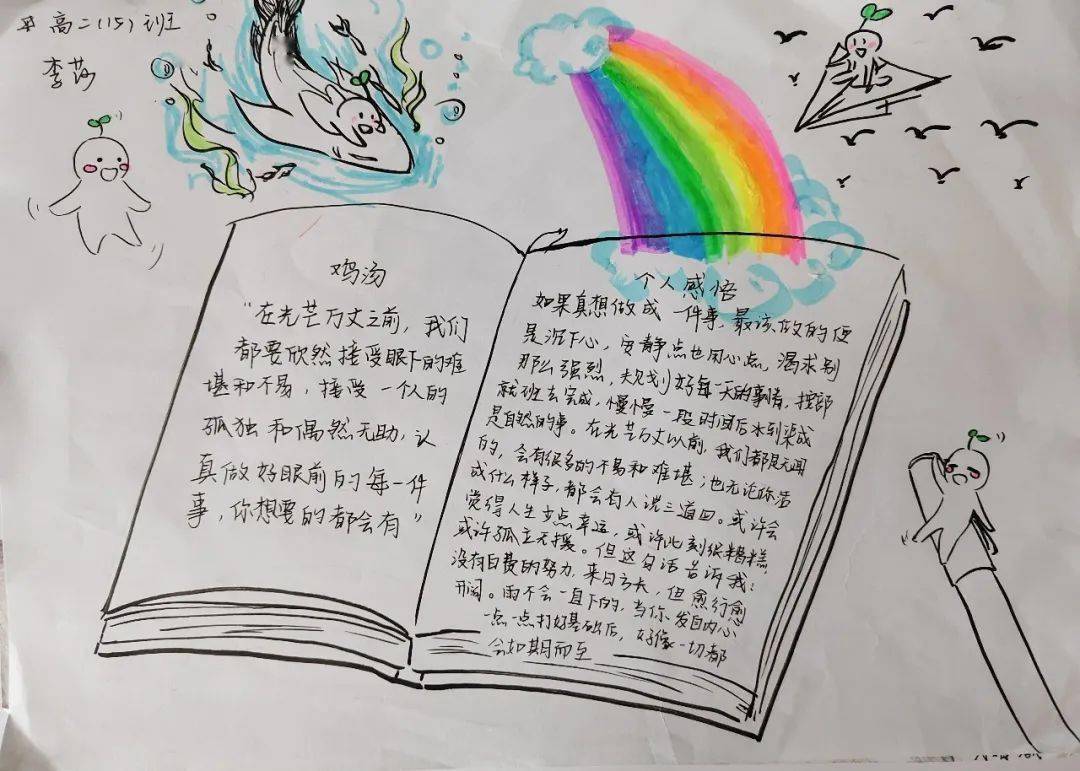 高二(15)班
李莎
鸡汤
“在光芒万丈之前，我们
都要欣然接受眼下的难
堪和不易，接受一个人的
孤独和偶然无助，认
真做好眼前的每一件
事，你想要的都会有”
个人感悟
如果真想做成一件事，最该做的便
是沉下心，安静点也用心点，渴求别
那么强烈，规划好每一天的事情，按部
就班去完成，慢慢一段时间后水到渠成
是自然的事。在光芒万丈以前，我们都是无闻
的，会有很多的不易和难堪；也无论你活
成什么样子，都会有人说三道四。或许会
觉得人生少点幸运，或许此刻很糟糕，
或许孤立无援。但这句话告诉我：
没有白费的努力，来日方长，但愈行愈
开阔。雨不会一直下的，当你发自内心
一点一点打好基础后，好像一切都
会如期而至